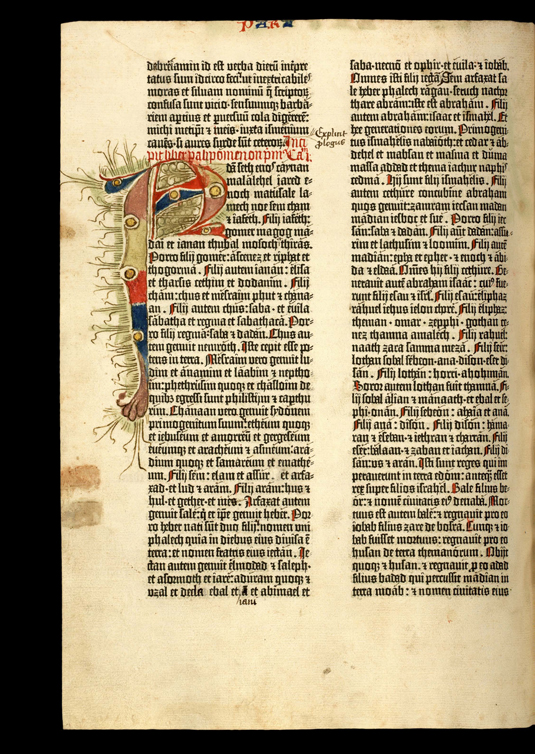 PARA
dabreiamin id est verba dierū inꝑpre
tatus sum: idcirco feci: ut inextricabiles
moras et silvam nominū q̄ scriptoꝝ
confusa sunt vicio · sensuumqꝫ barba⸗
riem apcius et ꝑ versuū cola digererē:
michi metipi ⁊ meis · iuxta ismeniam
canēs · si aures surde sūt ceteroꝝ. Inci
pit liber palipomenon pͥm9 Ca. i.
Explicit
ꝓlogus
Adā seth enos caynan
malalehel iared e⸗
noch matusale la⸗
mech noe sem cham
⁊ iafeth. Filij iafeth:
gomer magog ma⸗
dai et ianan thubal mosoch thiras.
Porro filij gomer: ascenez et riphat et
thogorma. Filij autem ianan: elisa
et tharsis cethim et dodanim. Filij
cham: chus et mesraim phut ⁊ chana⸗
an. Filij autem chus: saba · et euila
sabatha et regma et sabathaca. Por⸗
ro filij regma: saba ⁊ dadan. Chus au⸗
tem genuit nemroth. Iste cepit esse po⸗
tens in terra. Mesraim vero genuit lu⸗
dim et anamim et laabim ⁊ neptho⸗
im: phethrusim quoqꝫ et chasloim de
quibꝫ egressi sunt philistijm ⁊ capthu
rim. Chanaan vero genuit sydonem
primogenitum suum: etheum quoqꝫ
et iebuseum et amorreū et gergeseum
eueumqꝫ et aracheum ⁊ asineum: ara⸗
dium quoqꝫ et samareum et emathe⸗
um. Filij sem: elam et assur · et arfa⸗
xad · et lud ⁊ aram. Filij aram: hus ⁊
hul · et gether et mes. Arfaxat autem
genuit sale: q̄ et ip̄e genuit heber. Por⸗
ro heber nati sūt duo filij: nomen vni
phalech quia in diebus eius diuisa ē
terra: et nomen fratris eius iectan. Ie⸗
ctan autem genuit elmodad ⁊ saleph ·
et asermoth et iare: aduram quoqꝫ ⁊
vzal et decla ebal et et abimael et
saba · necnō et ophir · et euila · ⁊ iobab.
Omnes isti filij iectā. Sem arfaxat sa
le heber phalech ragau · seruch nachor
thare abram: iste est abraham. Filij
autem abraham: isaac et ismahel. Et
hee generationes eorum. Primogeni⸗
tus ismahelis nabaioth: et cedar ⁊ ab⸗
dehel et mabsan et masma et duma
massa adad et thema iachur naphis
cedma. Hij sunt filij ismahelis. Filij
autem cethure concubine abraham
quos genuit: zamram iecsan madan
madian iesboc et sue. Porro filij iec
san: saba ⁊ dadan. Filij aut̄ dadan: assu⸗
rim et lathusim ⁊ loomim. Filij autē
madian: epha et epher · ⁊ enoch ⁊ abi⸗
da ⁊ eldaa. Om̄es hij filij cethure. Ge⸗
nerauit autē abraham isaac: cui9 fue⸗
runt filij esau ⁊ isrl̄. Filij esau: eliphaz
rahuel iehus ielon chore. Filij eliphaz:
theman · omar · zepphi · gothan ce⸗
nez thamna amalech. Filij rahuel:
naath zara samma meza. Filij seir:
lothan sobal sebeon · ana · dison · eser di⸗
san. Filij lothan: horri · ahohmān.
Soror autem lothan fuit thamna. Fi⸗
lij sobal alian ⁊ manaath · et ebal et se⸗
phi · onan. Filij sebeon: ahaia et ana.
Filij ana: dison. Filij dison: hama⸗
ran · ⁊ esetan · ⁊ iethran ⁊ charran. Filij
eser: balaan · ⁊ zaban et iachan. Filij di
san: us et aran. Isti sunt reges qui im
perauerunt in terra edom: anteqꝫ esset
rex super filios israhel. Bale filius be⸗
or: ⁊ nomē ciuitatis ei9 denaba. Mor⸗
tuus est autem bale: ⁊ regnauit pro eo
iobab filius zare de bosra. Cunqꝫ ⁊ io⸗
bab fuisset mortuus: regnauit pro eo
husan de terra themanorum. Obijt
quoqꝫ ⁊ husan: ⁊ regnauit ꝓ eo adad
filius badad qui percussit madian in
terra moab: ⁊ nomen ciuitatis eius